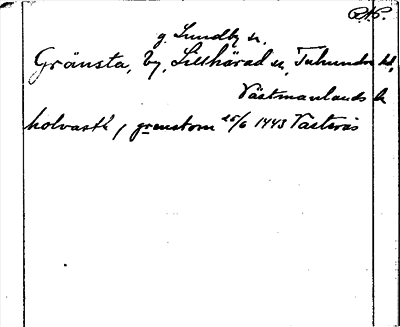 P.N.
g. Lundby sn.
Gränsta, by, Lillhärad sn, Tuhundra hd,
Västmanlands l.
holvasth / grenstom 25/6 1443 Västerås